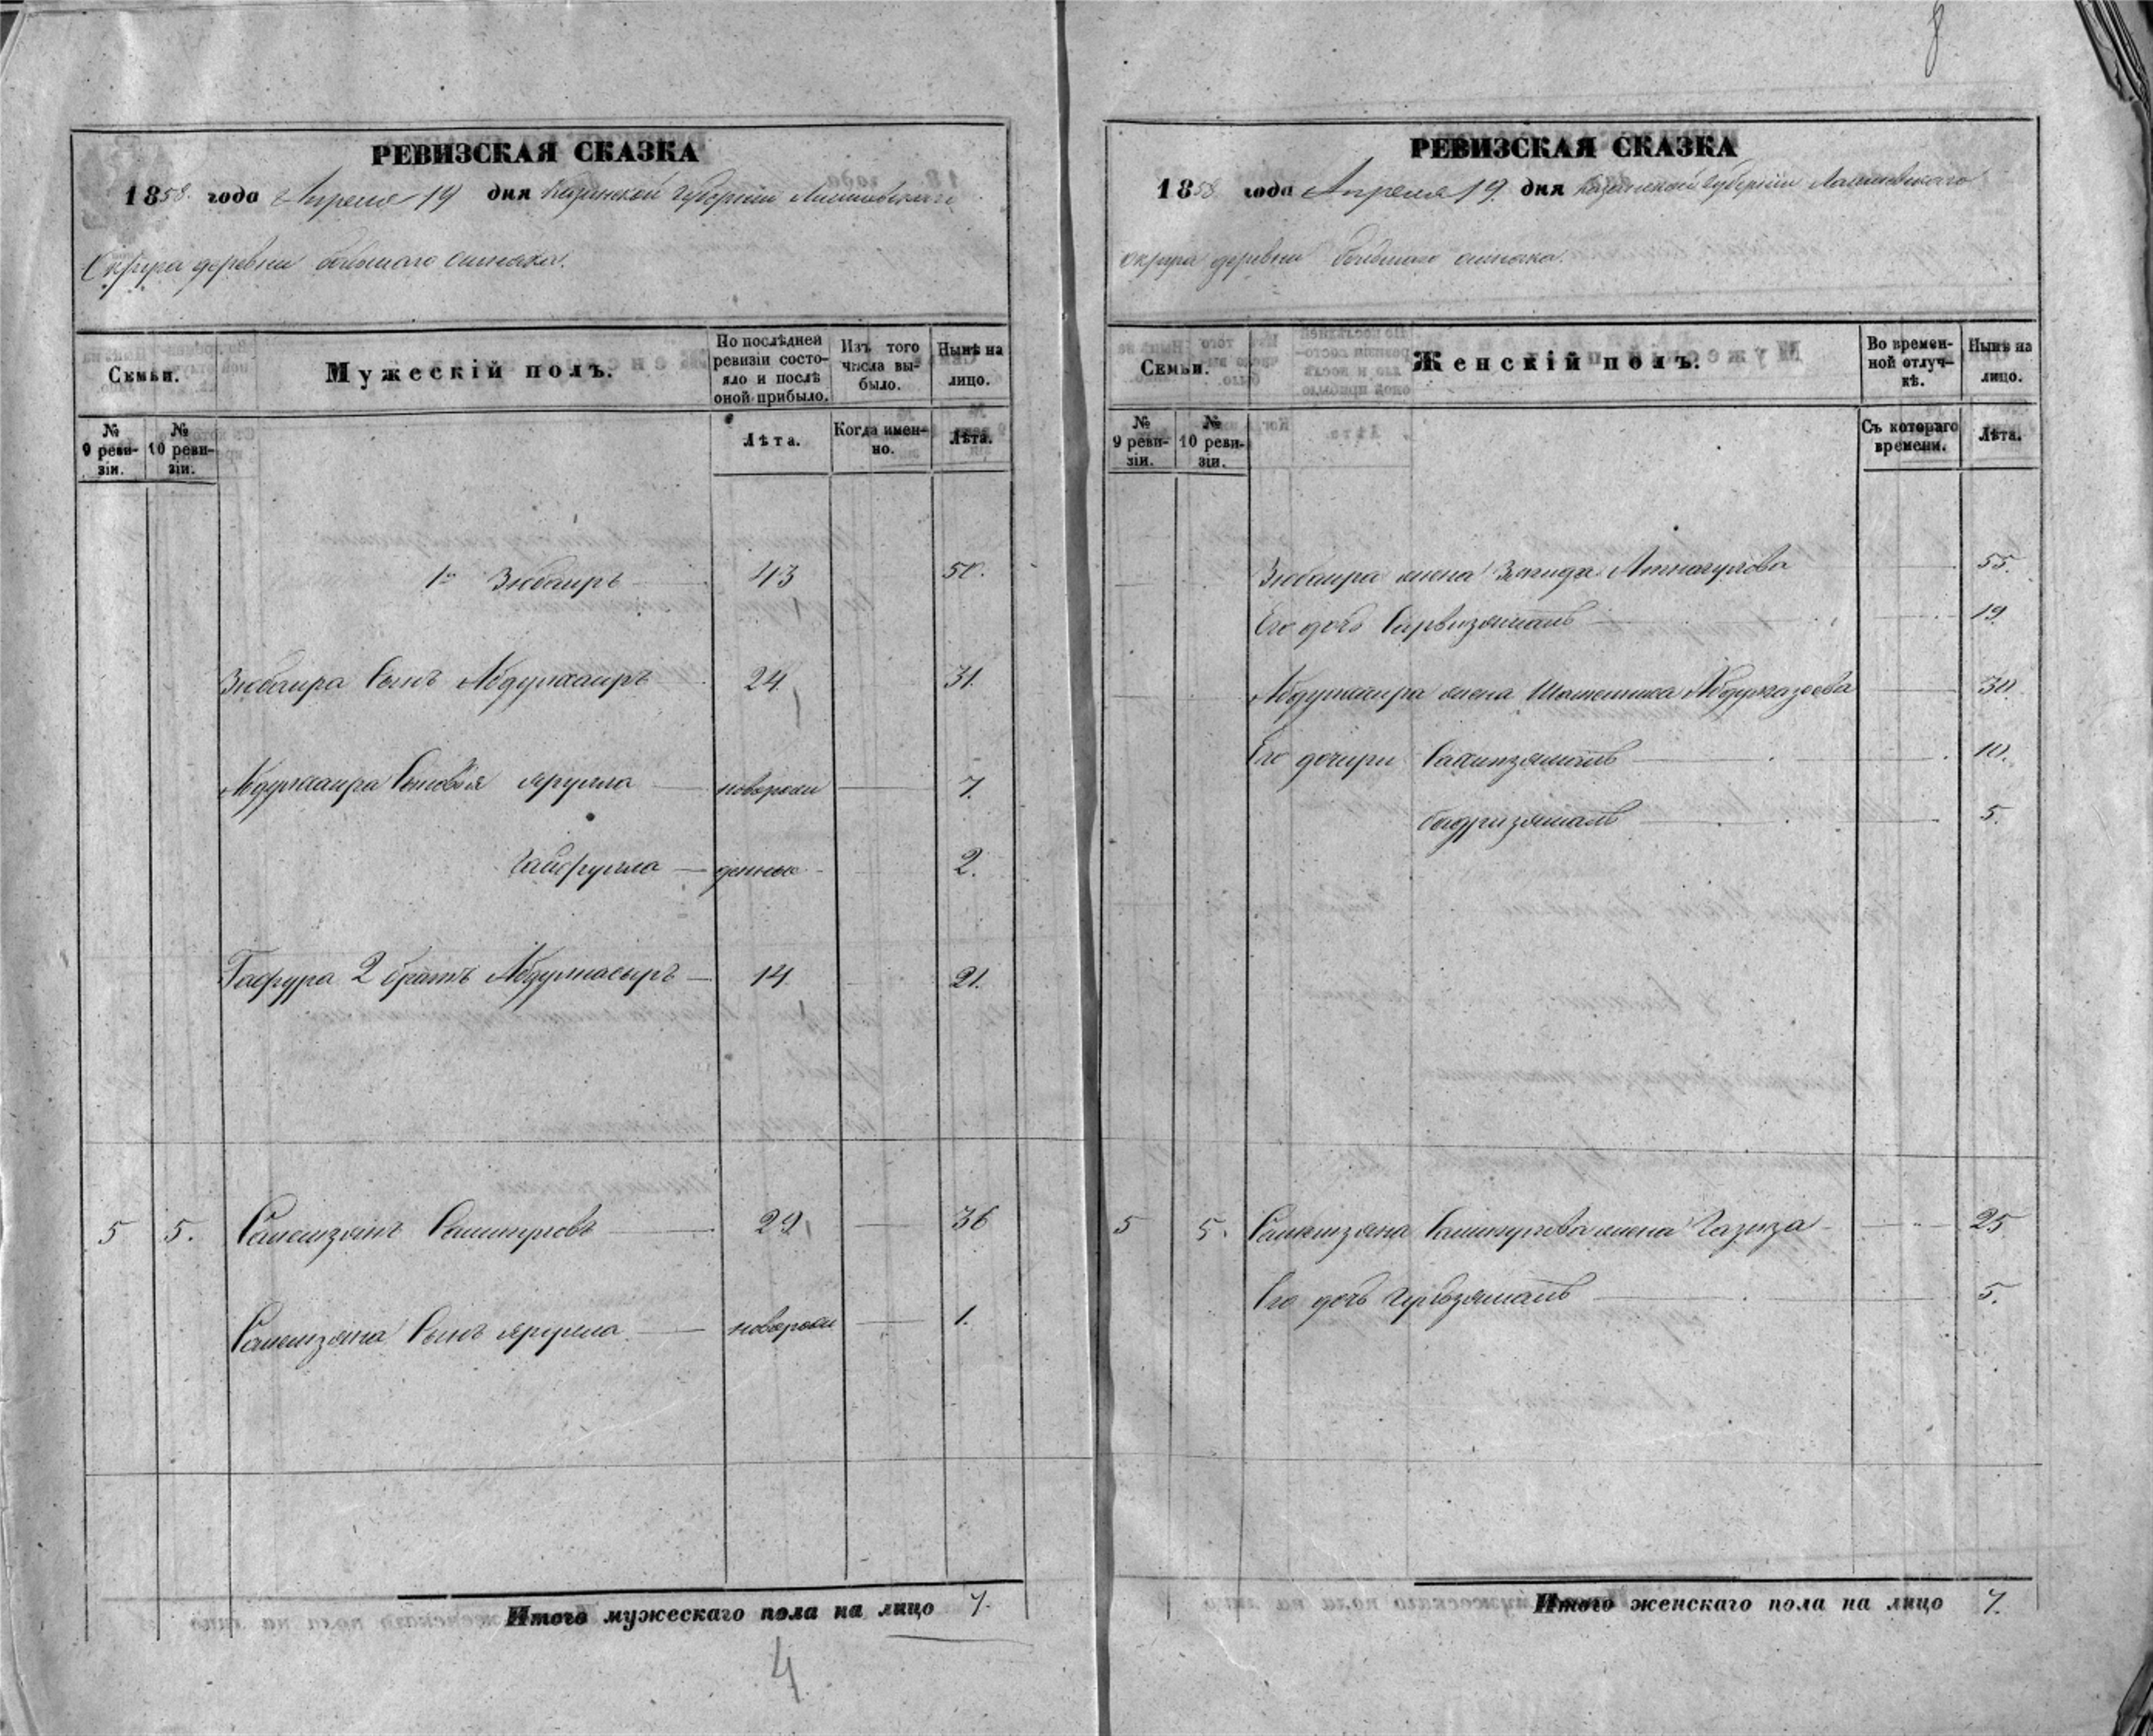 8
РЕВИЗСКАЯ СКАЗКА
1858 года Апреля 19 дня Казанской Губернии Лаишевскаго
Округа деревни большаго
Семьи.
Мужескій полъ.
По послѣдней ревизіи состояло и послѣ оной прибыло.
Изъ того числа выбыло.
Нынѣ на лицо.
№ 9 ревизіи.
№ 10 ревизіи.
Лѣта.
Когда именно.
Лѣта.
1й Зюбаиръ 43 50.
Зюбаира Сынъ Абдулкаиръ 24 31.
Абдулкаира Сыновья Ярулла новорож 7.
Гайфулла денные 2.
Гафура 2 братъ Абдулнасыръ 14 21.
5 5. 29 36
Сынъ Ярулла новорож 1.
Итого мужескаго пола на лицо 7.
4
РЕВИЗСКАЯ СКАЗКА
1858 года Апреля 19. дня Казанской Губернии Лаишевскаго
округа деревни большаго
Семьи.
Женскій полъ.
Во временной отлучкѣ.
Нынѣ на лицо.
№ 9 ревизіи.
№ 10 ревизіи.
Съ котораго времени.
Лѣта.
Зюбаира жена Зягида 55.
Его дочь Сарвизямаль 19.
Абдулкаира жена 30.
Его дочери 10.
Бадризямаль 5.
5 5. жена Газиза 25
Его дочь 5.
Итого женскаго пола на лицо 7.